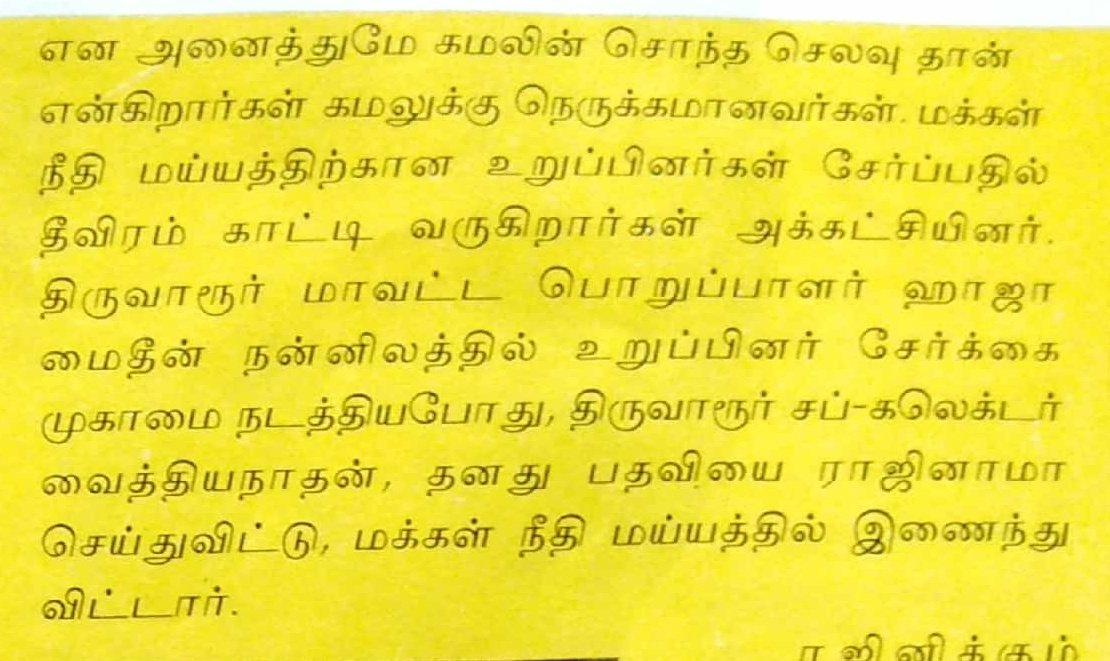 என அனைத்துமே கமலின் சொந்த செலவு தான்
என்கிறார்கள் கமலுக்கு நெருக்கமானவர்கள். மக்கள்
நீதி மய்யத்திற்கான உறுப்பினர்கள் சேர்ப்பதில்
தீவிரம் காட்டி வருகிறார்கள் அக்கட்சியினர்.
திருவாரூர் மாவட்ட பொறுப்பாளர் ஹாஜா
மைதீன் நன்னிலத்தில் உறுப்பினர் சேர்க்கை
முகாமை நடத்தியபோது, திருவாரூர் சப்-கலெக்டர்
வைத்தியநாதன், தனது பதவியை ராஜினாமா
செய்துவிட்டு, மக்கள் நீதி மய்யத்தில் இணைந்து
விட்டார்.
ரஜினிக்கும்